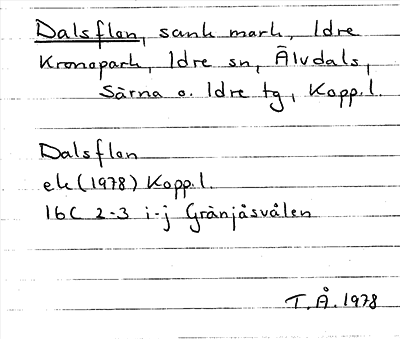 Dalsflon, sank mark, Idre
Kronopark, Idre sn, Älvdals,
Särna o. Idre tg, Kopp.l.
Dalsflon
ek (1978) Kopp.l.
16C 2-3 i-j Gränjåsvålen
T.Å. 1978